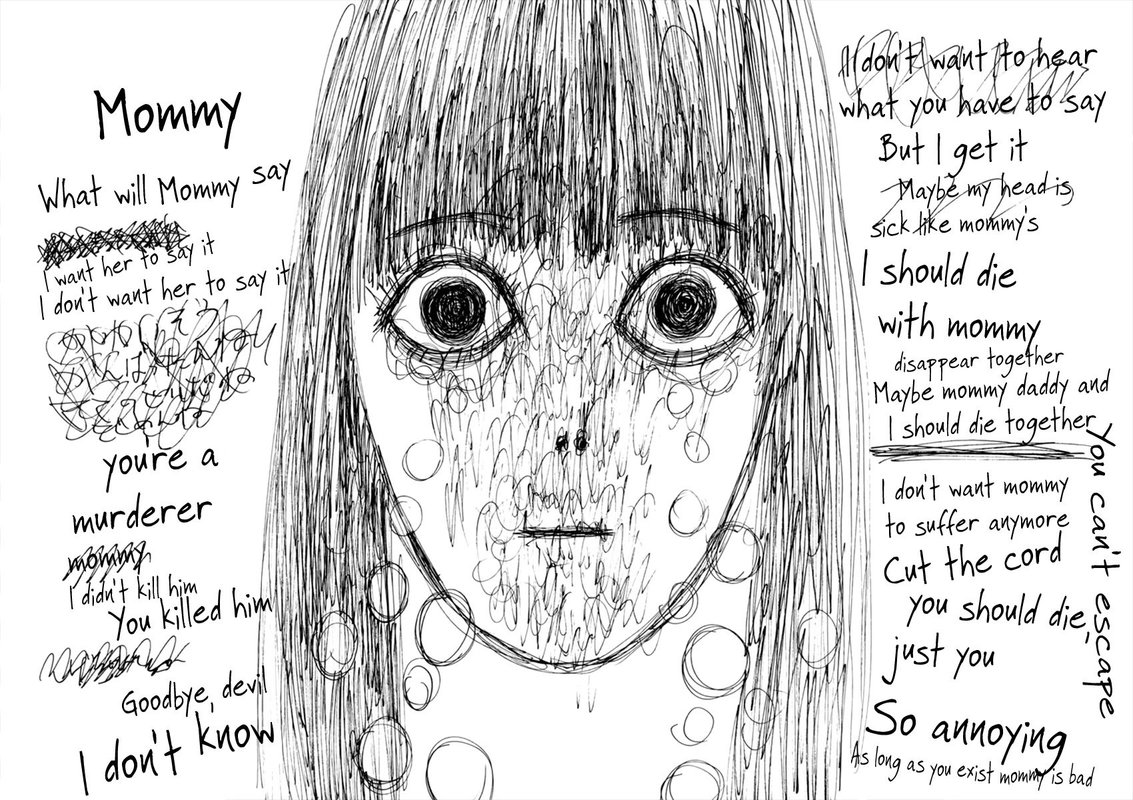 Mommy
What will Mommy say
I want her to say it
I don't want her to say it
you're a
murderer
mommy
I didn't kill him
You killed him
Goodbye, devil
I don't know
I don't want to hear
what you have to say
But I get it
Maybe my head is
sick like mommy's
I should die
with mommy
disappear together
Maybe mommy daddy and
I should die together
I don't want mommy
to suffer anymore
Cut the cord
you should die,
just you
You can't escape
So annoying
As long as you exist mommy is bad